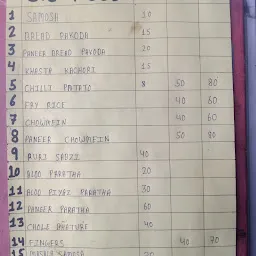 1 SAMOSA 10
2 BREAD PAKODA 15
3 PANEER BREAD PAKODA 20
4 KHASTA KACHORI 15
5 CHILLI POTATO 50 80
6 FRY RICE 40 60
7 CHOWMEIN 40 60
8 PANEER CHOWMEIN 50 80
9 PURI SABZI 40
10 ALOO PARATHA 20
11 ALOO PIYAZ PARATHA 30
12 PANEER PARATHA 60
13 CHOLE BHATURE 40
14 FINGERS 40 70
15 MASALA SAMOSA 20